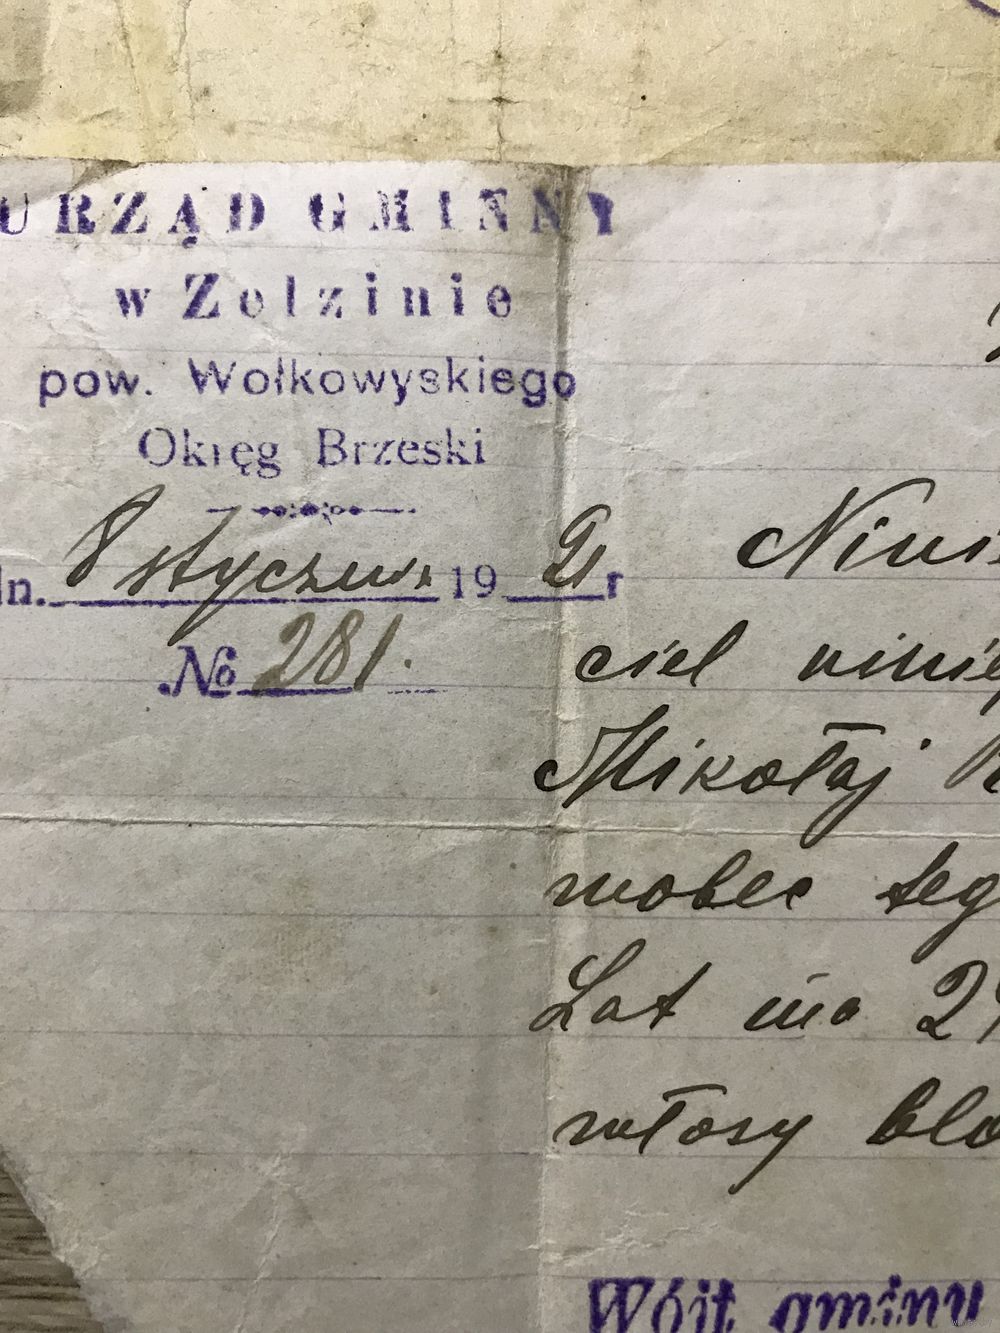 URZĄD GMINNY
w Zelzinie
pow. Wołkowyskiego
Okręg Brzeski
dn. 8 stycznia 19 21 r
№ 281.
Nini
ciel niniej
Mikołaj
wobec teg
Lat ma 24
włosy blo
Wójt gminy